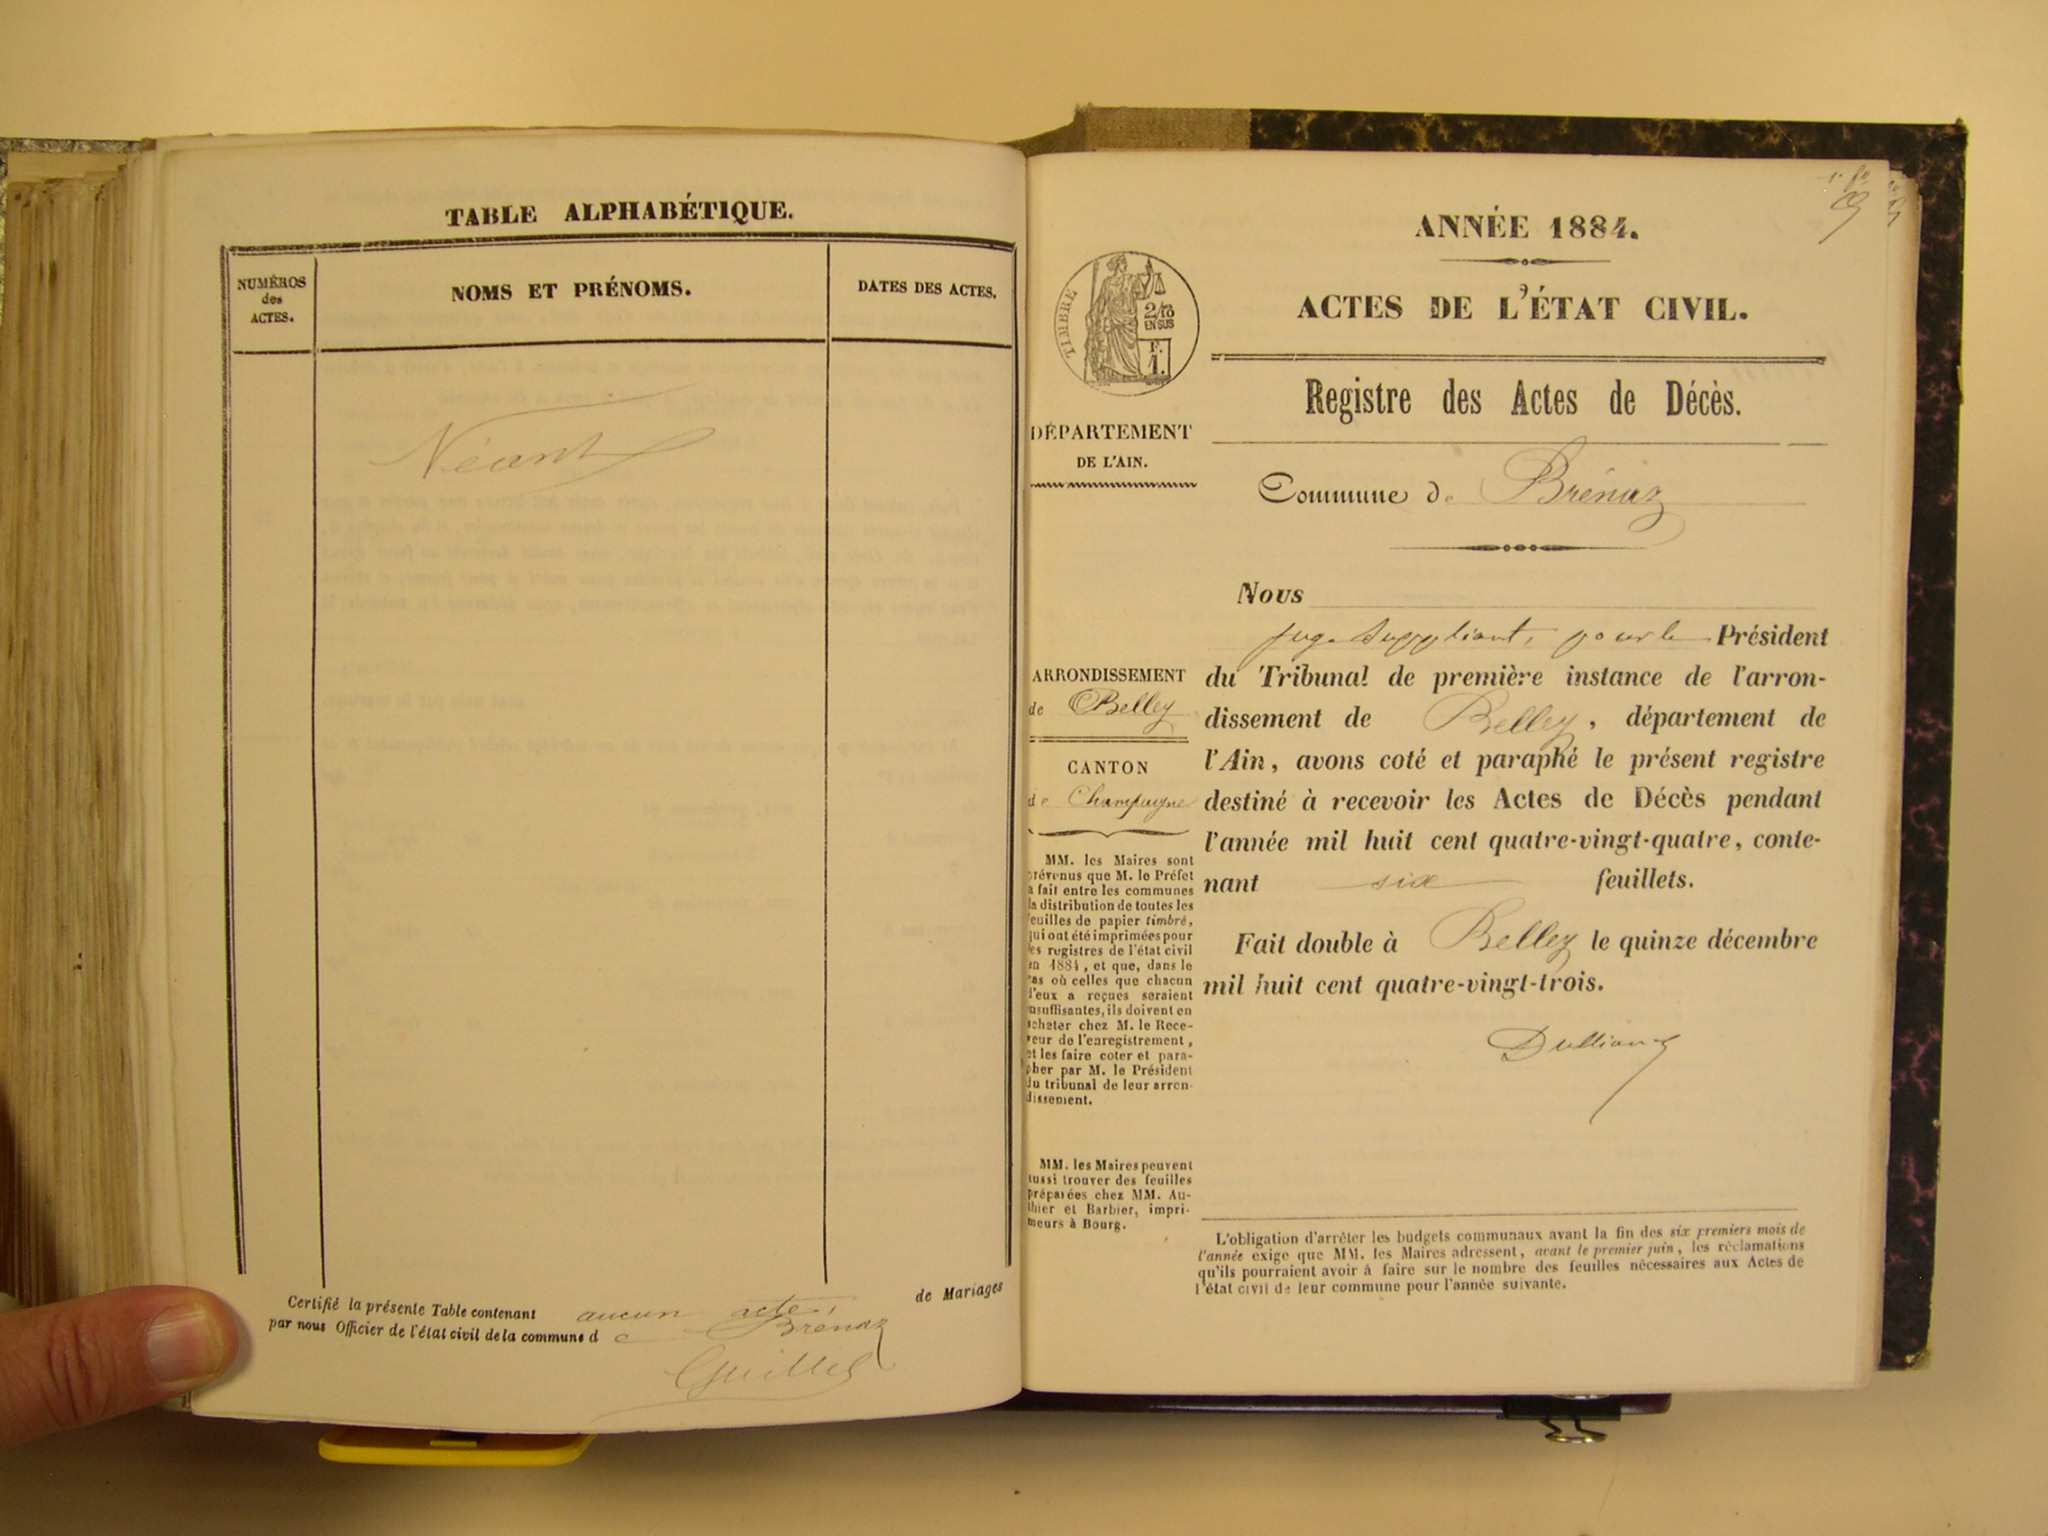 TABLE ALPHABÉTIQUE.
NUMÉROS
des
ACTES.
NOMS ET PRÉNOMS.
DATES DES ACTES.
Néant
Certifié la présente Table contenant aucun acte, de Mariages
par nous Officier de l'état civil de la commune de Brénaz
Guillet
ANNÉE 1884.
ACTES DE L'ÉTAT CIVIL.
TIMBRE
2/10
EN SUS
F.
1.
Registre des Actes de Décès.
DÉPARTEMENT
DE L'AIN.
Commune de Brénaz
Nous
juge suppléant, pour le Président
du Tribunal de première instance de l'arron-
dissement de Belley, département de
l'Ain, avons coté et paraphé le présent registre
destiné à recevoir les Actes de Décès pendant
l'année mil huit cent quatre-vingt-quatre, conte-
nant six feuillets.
Fait double à Belley le quinze décembre
mil huit cent quatre-vingt-trois.
ARRONDISSEMENT
de Belley
CANTON
de Champagne
MM. les Maires sont
prévenus que M. le Préfet
a fait entre les communes
la distribution de toutes les
feuilles de papier timbré,
qui ont été imprimées pour
les registres de l'état civil
en 1884, et que, dans le
cas où celles que chacun
d'eux a reçues seraient
insuffisantes, ils doivent en
acheter chez M. le Rece-
veur de l'enregistrement,
et les faire coter et para-
pher par M. le Président
du tribunal de leur arron-
dissement.
MM. les Maires peuvent
aussi trouver des feuilles
préparées chez MM. Au-
thier et Barbier, impri-
meurs à Bourg.
L'obligation d'arrêter les budgets communaux avant la fin des six premiers mois de
l'année exige que MM. les Maires adressent, avant le premier juin, les réclamations
qu'ils pourraient avoir à faire sur le nombre des feuilles nécessaires aux Actes de
l'état civil de leur commune pour l'année suivante.